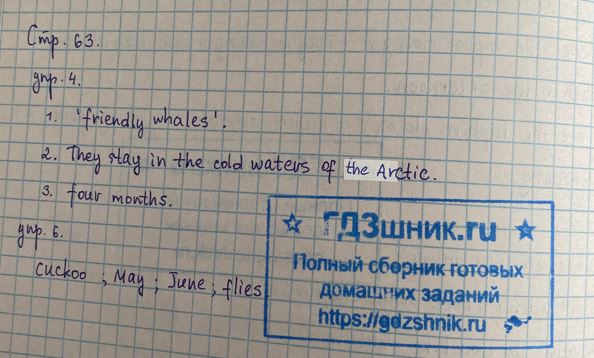 Стр. 63.
упр. 4.
1. 'friendly whales'.
2. They stay in the cold waters of the Arctic.
3. four months.
упр. 6.
cuckoo ; May ; June ; flies
ГДЗшник.ru
Полный сборник готовых
домашних заданий
https://gdzshnik.ru